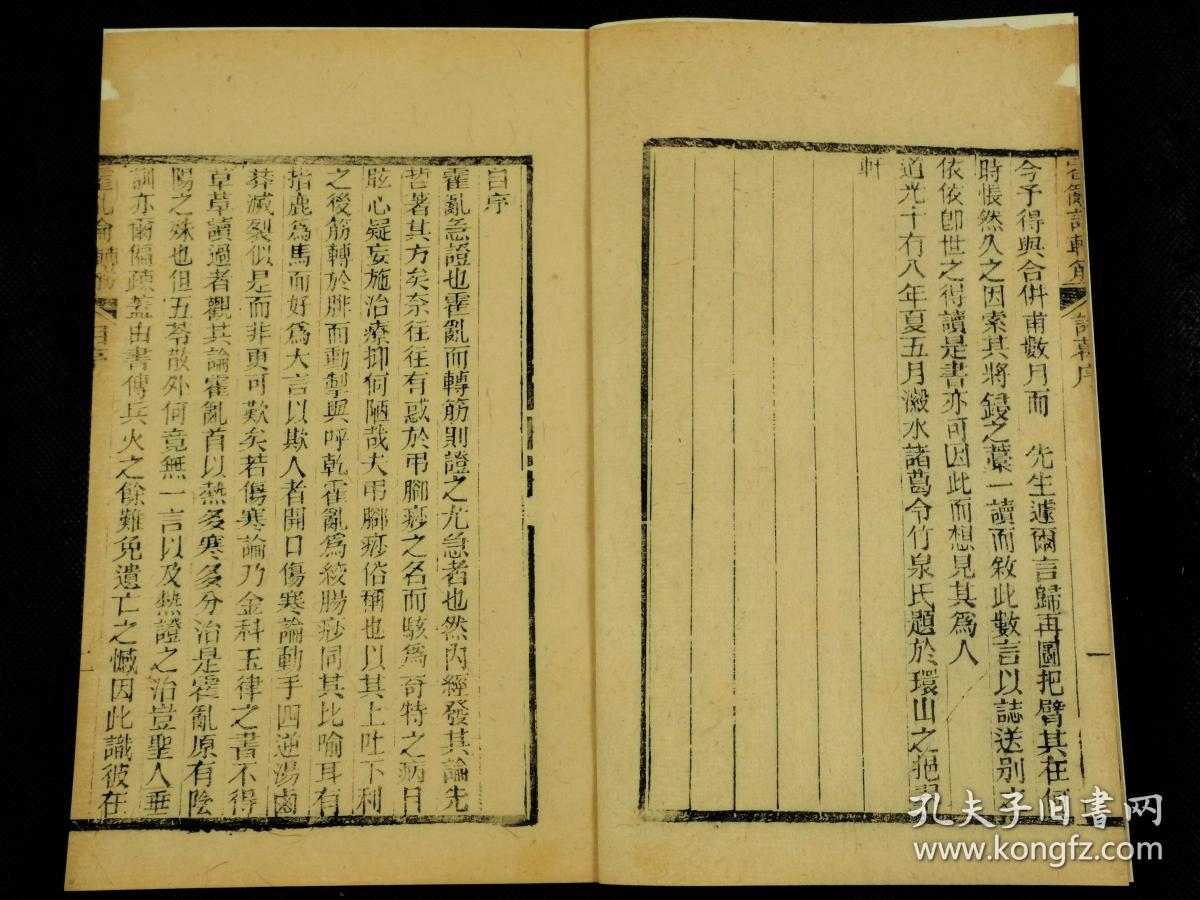 今予得與合併甫數月而　先生遽爾言歸再圖把臂其在何
時悵然久之因索其將鋟之藁一讀而敘此數言以誌送别之
依依卽世之得讀是書亦可因此而想見其爲人
道光十有八年夏五月瀫水諸葛令竹泉氏題於環山之挹
軒
序
一
自序
霍亂急證也霍亂而轉筋則證之尤急者也然內經發其論先
哲著其方矣奈往往有惑於弔腳痧之名而駭爲奇特之病目
眩心疑妄施治療抑何陋哉夫弔腳痧俗稱也以其上吐下利
之後筋轉於腓而動掣與呼乾霍亂爲絞腸痧同其比喻耳有
指鹿爲馬而好爲大言以欺人者開口傷寒論動手四逆湯鹵
莽滅裂似是而非更可歎矣若傷寒論乃金科玉律之書不得
草草讀過者觀其論霍亂首以熱多寒多分治是霍亂原有陰
陽之殊也但五苓散外何竟無一言以及熱證之治豈聖人垂
訓亦爾偏疎蓋由書傳兵火之餘難免遺亡之憾因此識彼在
霍亂論
自序
一
孔夫子旧书网
www.kongfz.com